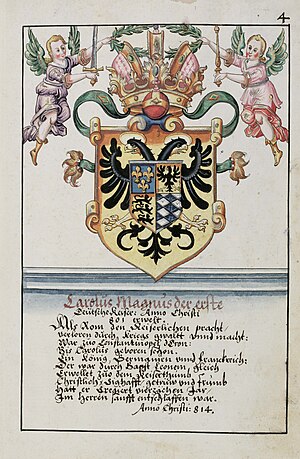 4
Carolus Magnus der erste
Deutsche Keiser: Anno Christi
801 erwelt.
Als Rom den Keiserlichen pracht
verloren durch Kriegs gewalt vnnd macht:
War zuo Constantinopel Cron:
Bis Carolus geboren schon.
Ein König Germanien vnnd Franckreich:
Der war durch Bapst Leonem gleich
Erwellet zuo dem Keiserthumb
Christlich: Sighafft, getrüw vnd frumb
Hatt er Regiert vierzaehen Jar
Im Herren sanfft entschlaffen war.
Anno Christi: 814.